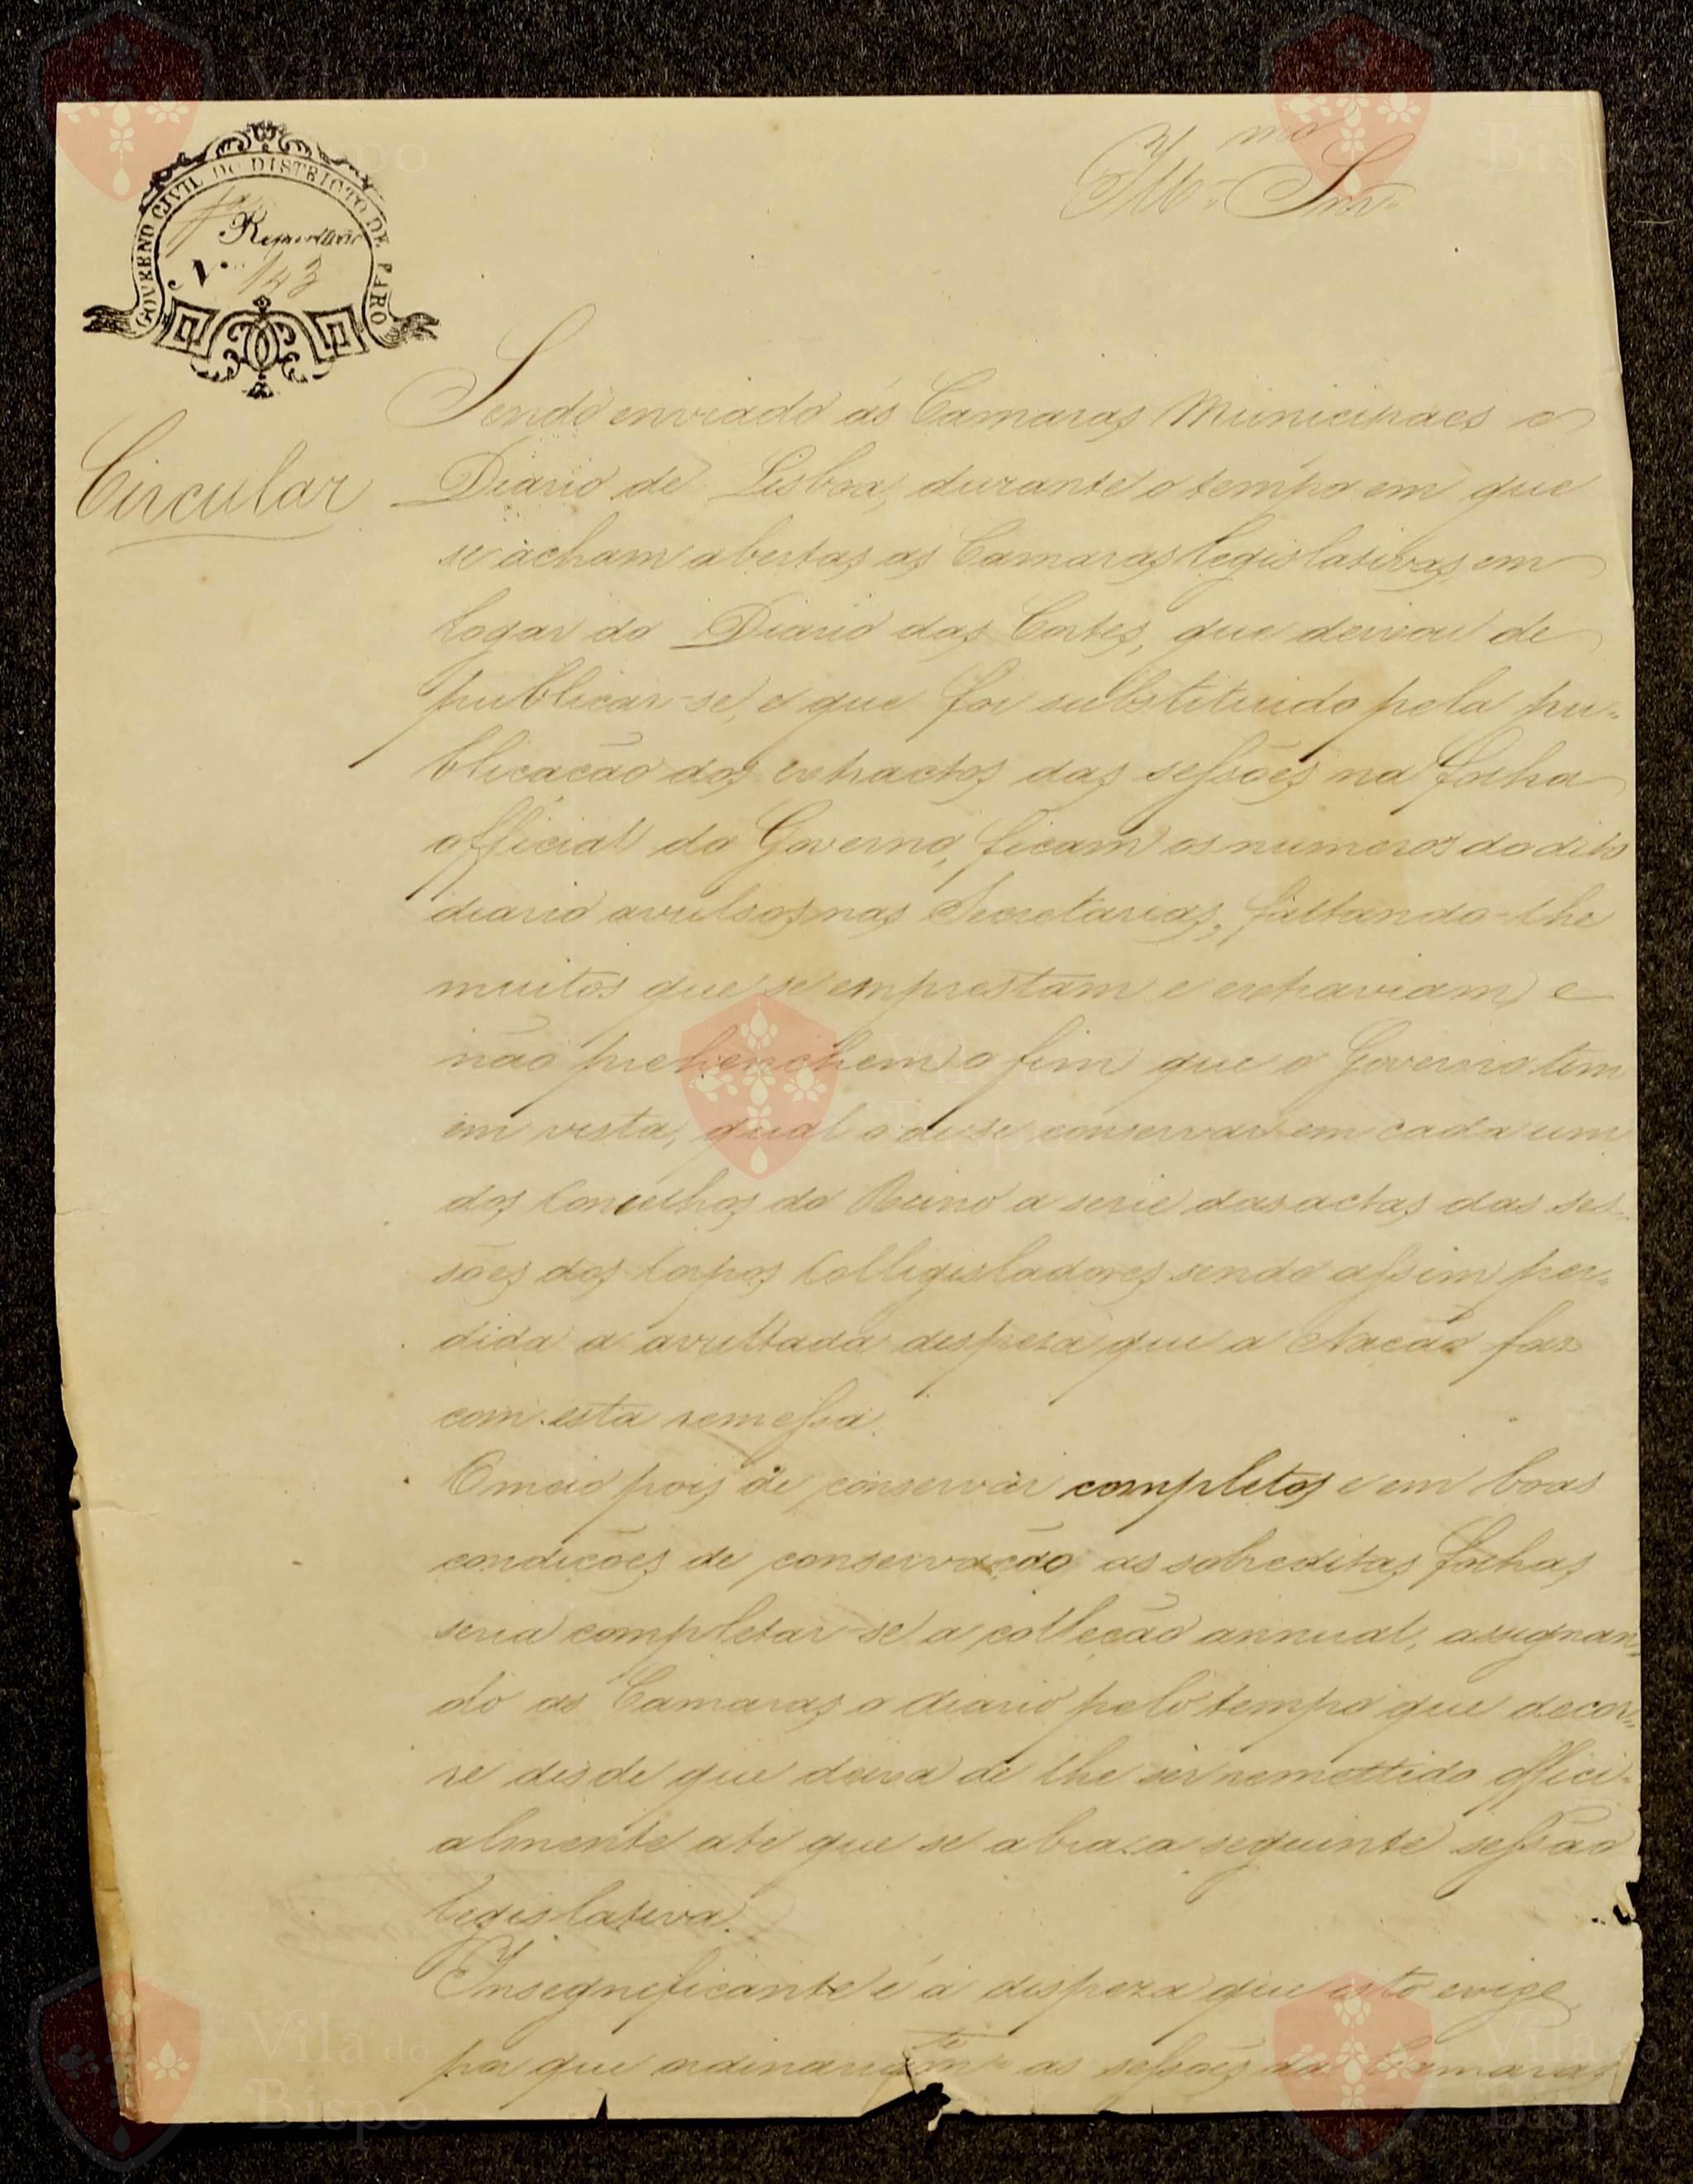 Ill.mo Snr.
GOVERNO CIVIL DO DISTRICTO DE FARO
1ª Repartição
N.º 143
Circular
Sendo enviado ás Camaras Municipaes o
Diario de Lisboa, durante o tempo em que
se acham abertas as Camaras legislativas, em
logar do Diario das Cortes, que deixou de
publicar-se, e que foi substituido pela pu-
blicacão dos extractos das sessões na folha
official do Governo, ficam os numeros do dito
diario avulsos nas Secretarias, faltando-lhe
muitos que se emprestam e extraviam, e
não prehenchem o fim que o Governo tem
em vista, qual o de se conservar em cada um
dos Concelhos do Reino a serie das actas das ses-
sões dos Corpos Collegisladores sendo assim per-
dida a avultada despeza que a Nação faz
com esta remessa.
O meio pois de conservar completos e em boas
condicões de conservacão as sobreditas folhas
seria completar-se a collecão annual, assignan-
do as Camaras o diario pelo tempo que decor-
re desde que deixa de lhe ser remettido offici-
almente até que se abra a seguinte sessão
legislativa.
Insegneficante é a despeza que isto exige
por que ordinariamte as sessões das Camaras
Vila do Bispo